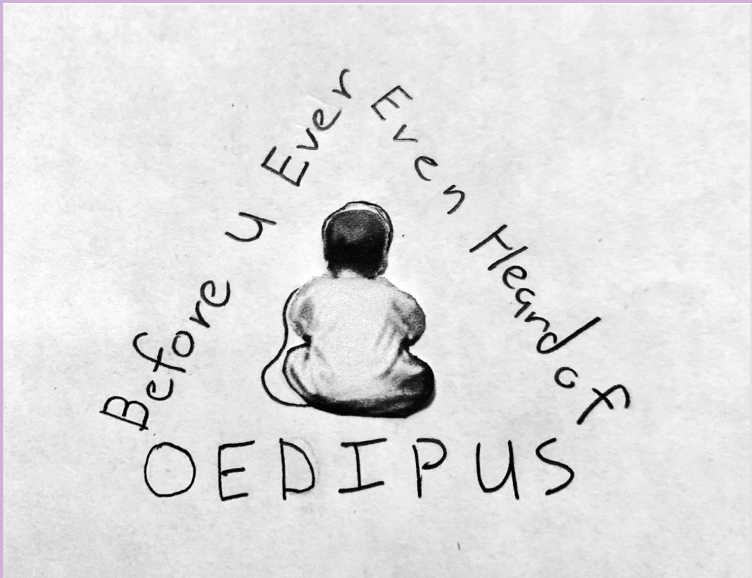 Before u Ever Even Heard of
OEDIPUS